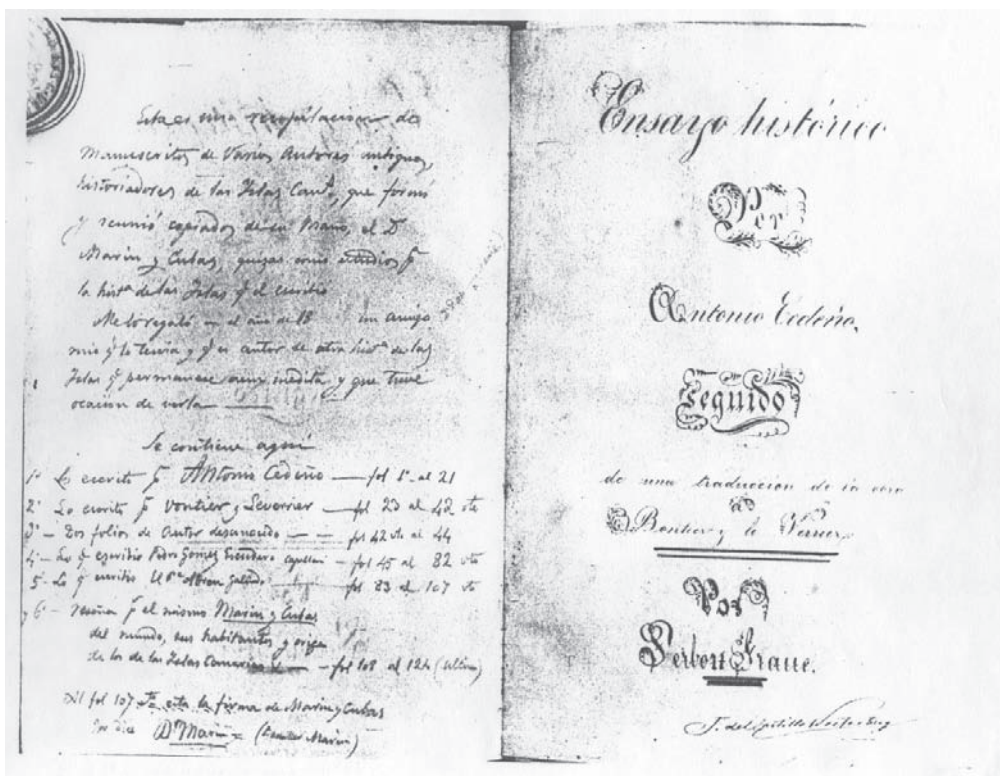 Esta es una recopilacion de
Manuscritos de Varios Autores antiguos,
historiadores de las Islas Canˢ, que formó
y reunió copiados de su Mano, el D
Marin y Cubas, quizas como estudios pª
la histª de las Islas q el escribio
Me lo regaló en el año de 18 un amigo
mio q lo tenia y q es autor de otra histª de las
Islas q permanece inedita, y que tuve
ocasion de verla
Se contiene aqui
1º Lo escrito pʳ Antonio Cedeño — fol 1º al 21
2º Lo escrito pʳ Vontier y Leverrier — fol 23 al 42 vto
3º - Dos folios de Autor desconocido — fol 42 vto al 44
4º - Lo q escribio Pedro Gomez Escudero Capellan - fol 45 al 82 vto
5º Lo q escribio el — fol 83 al 107 vto
y 6º - reseña pʳ el mismo Marin y Cubas
del mundo, sus habitantes y origen
de los de las Islas Canarias — fol 108 al 124 (ultimo)
Al fol 107 vto esta la firma de Marin y Cubas
Dʳ Marin = (Doctor Marin)
Ensayo histórico
Por
Antonio Cedeño,
Seguido
de una traduccion de la
de Bontier y le Verrier,
Por